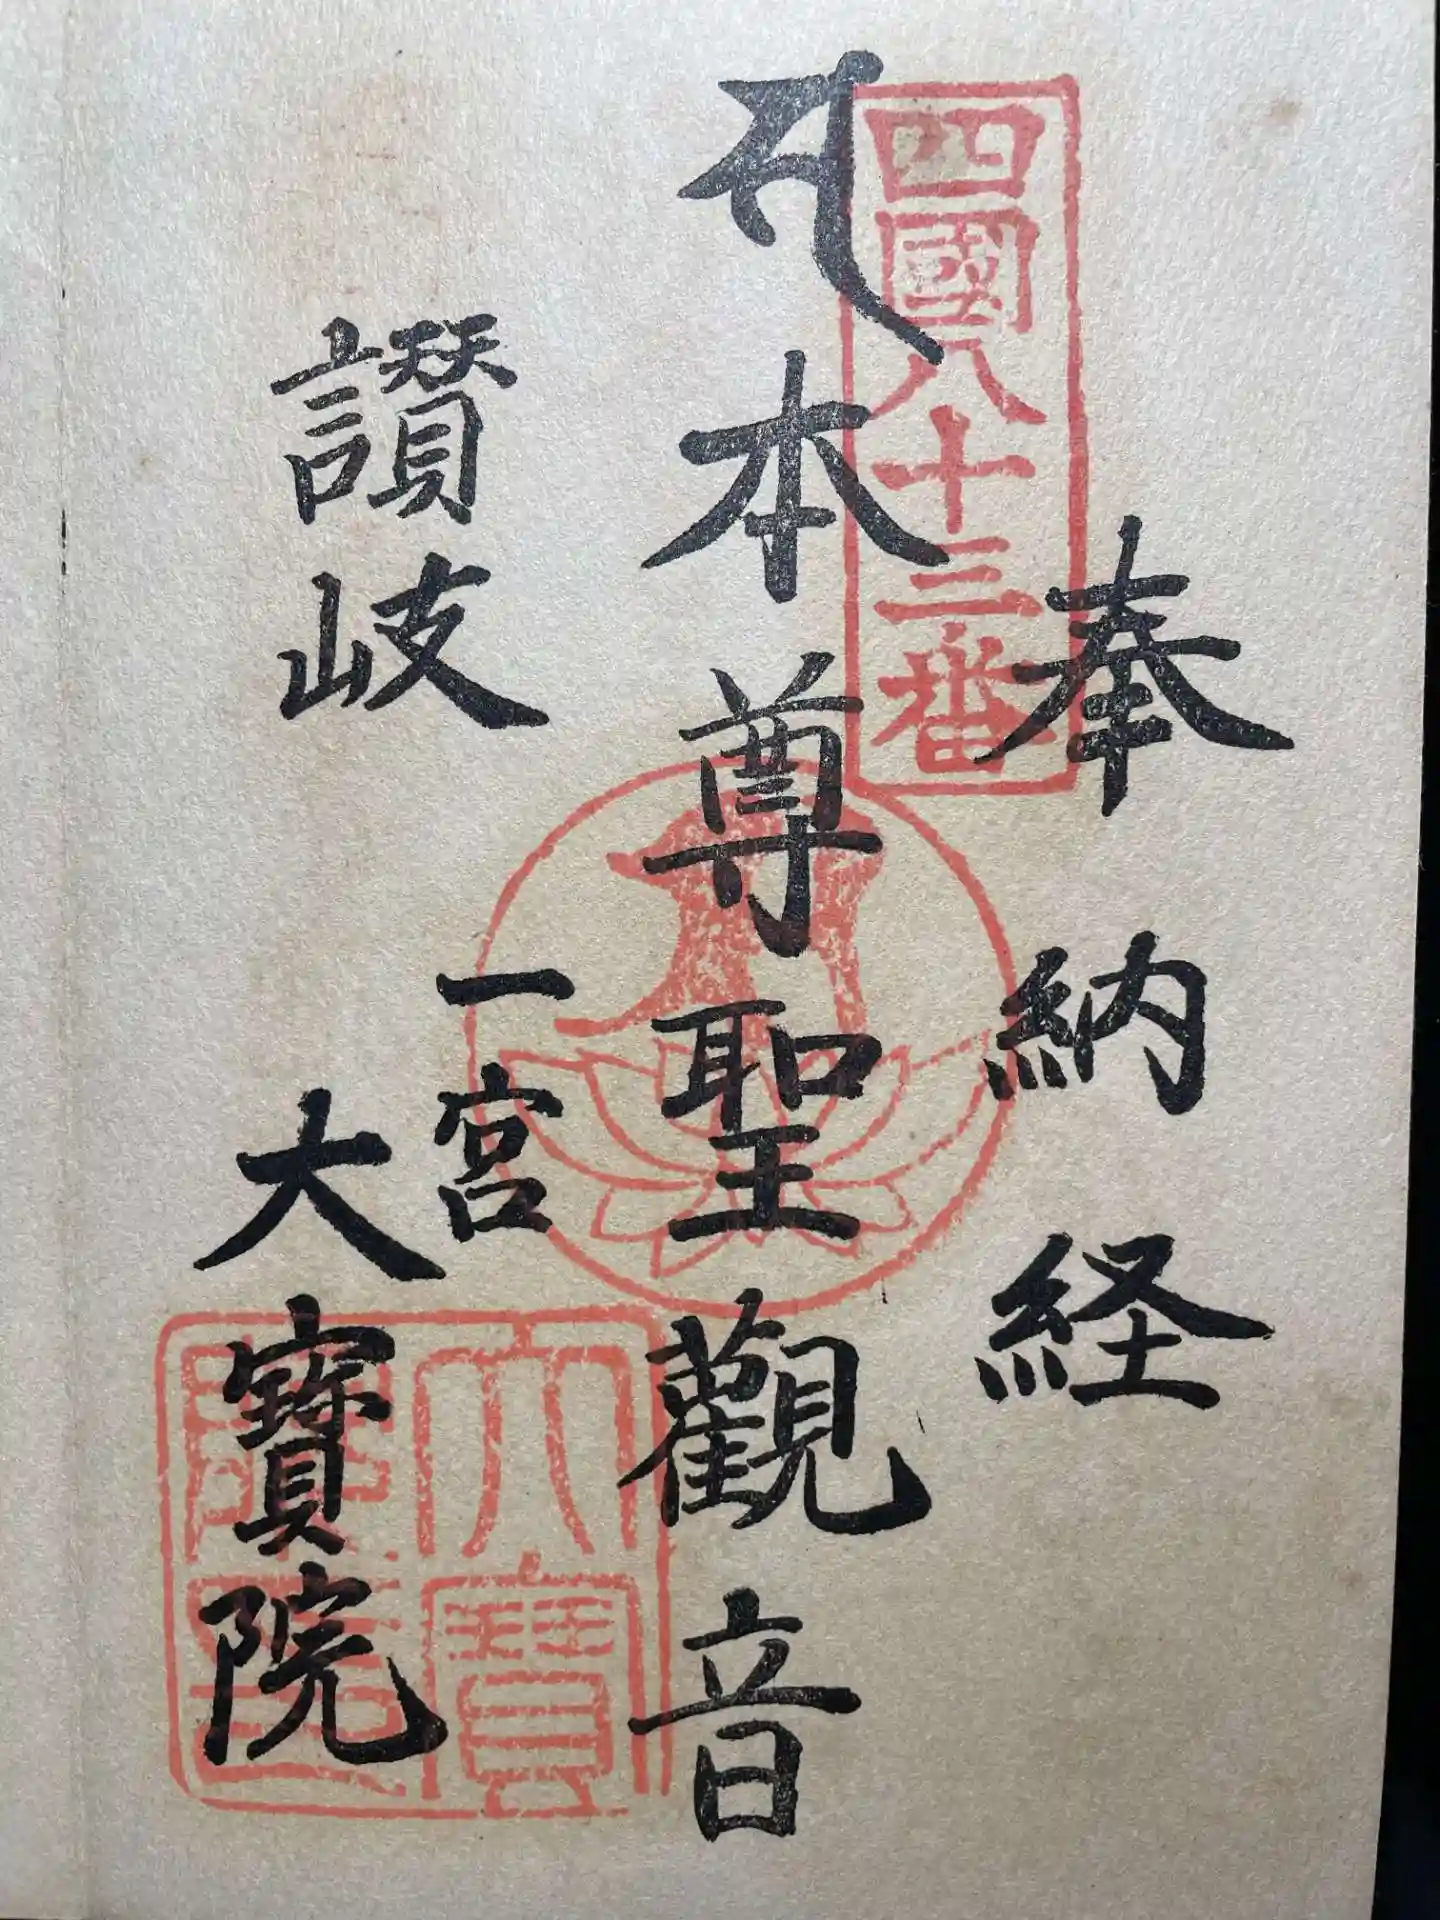 奉納経
四國八十三番
本尊聖觀音
讃岐
一宮
大寳院
大寳院印